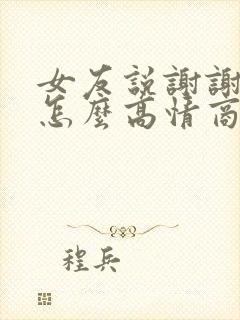 女友説謝謝
怎麼高情商
程兵